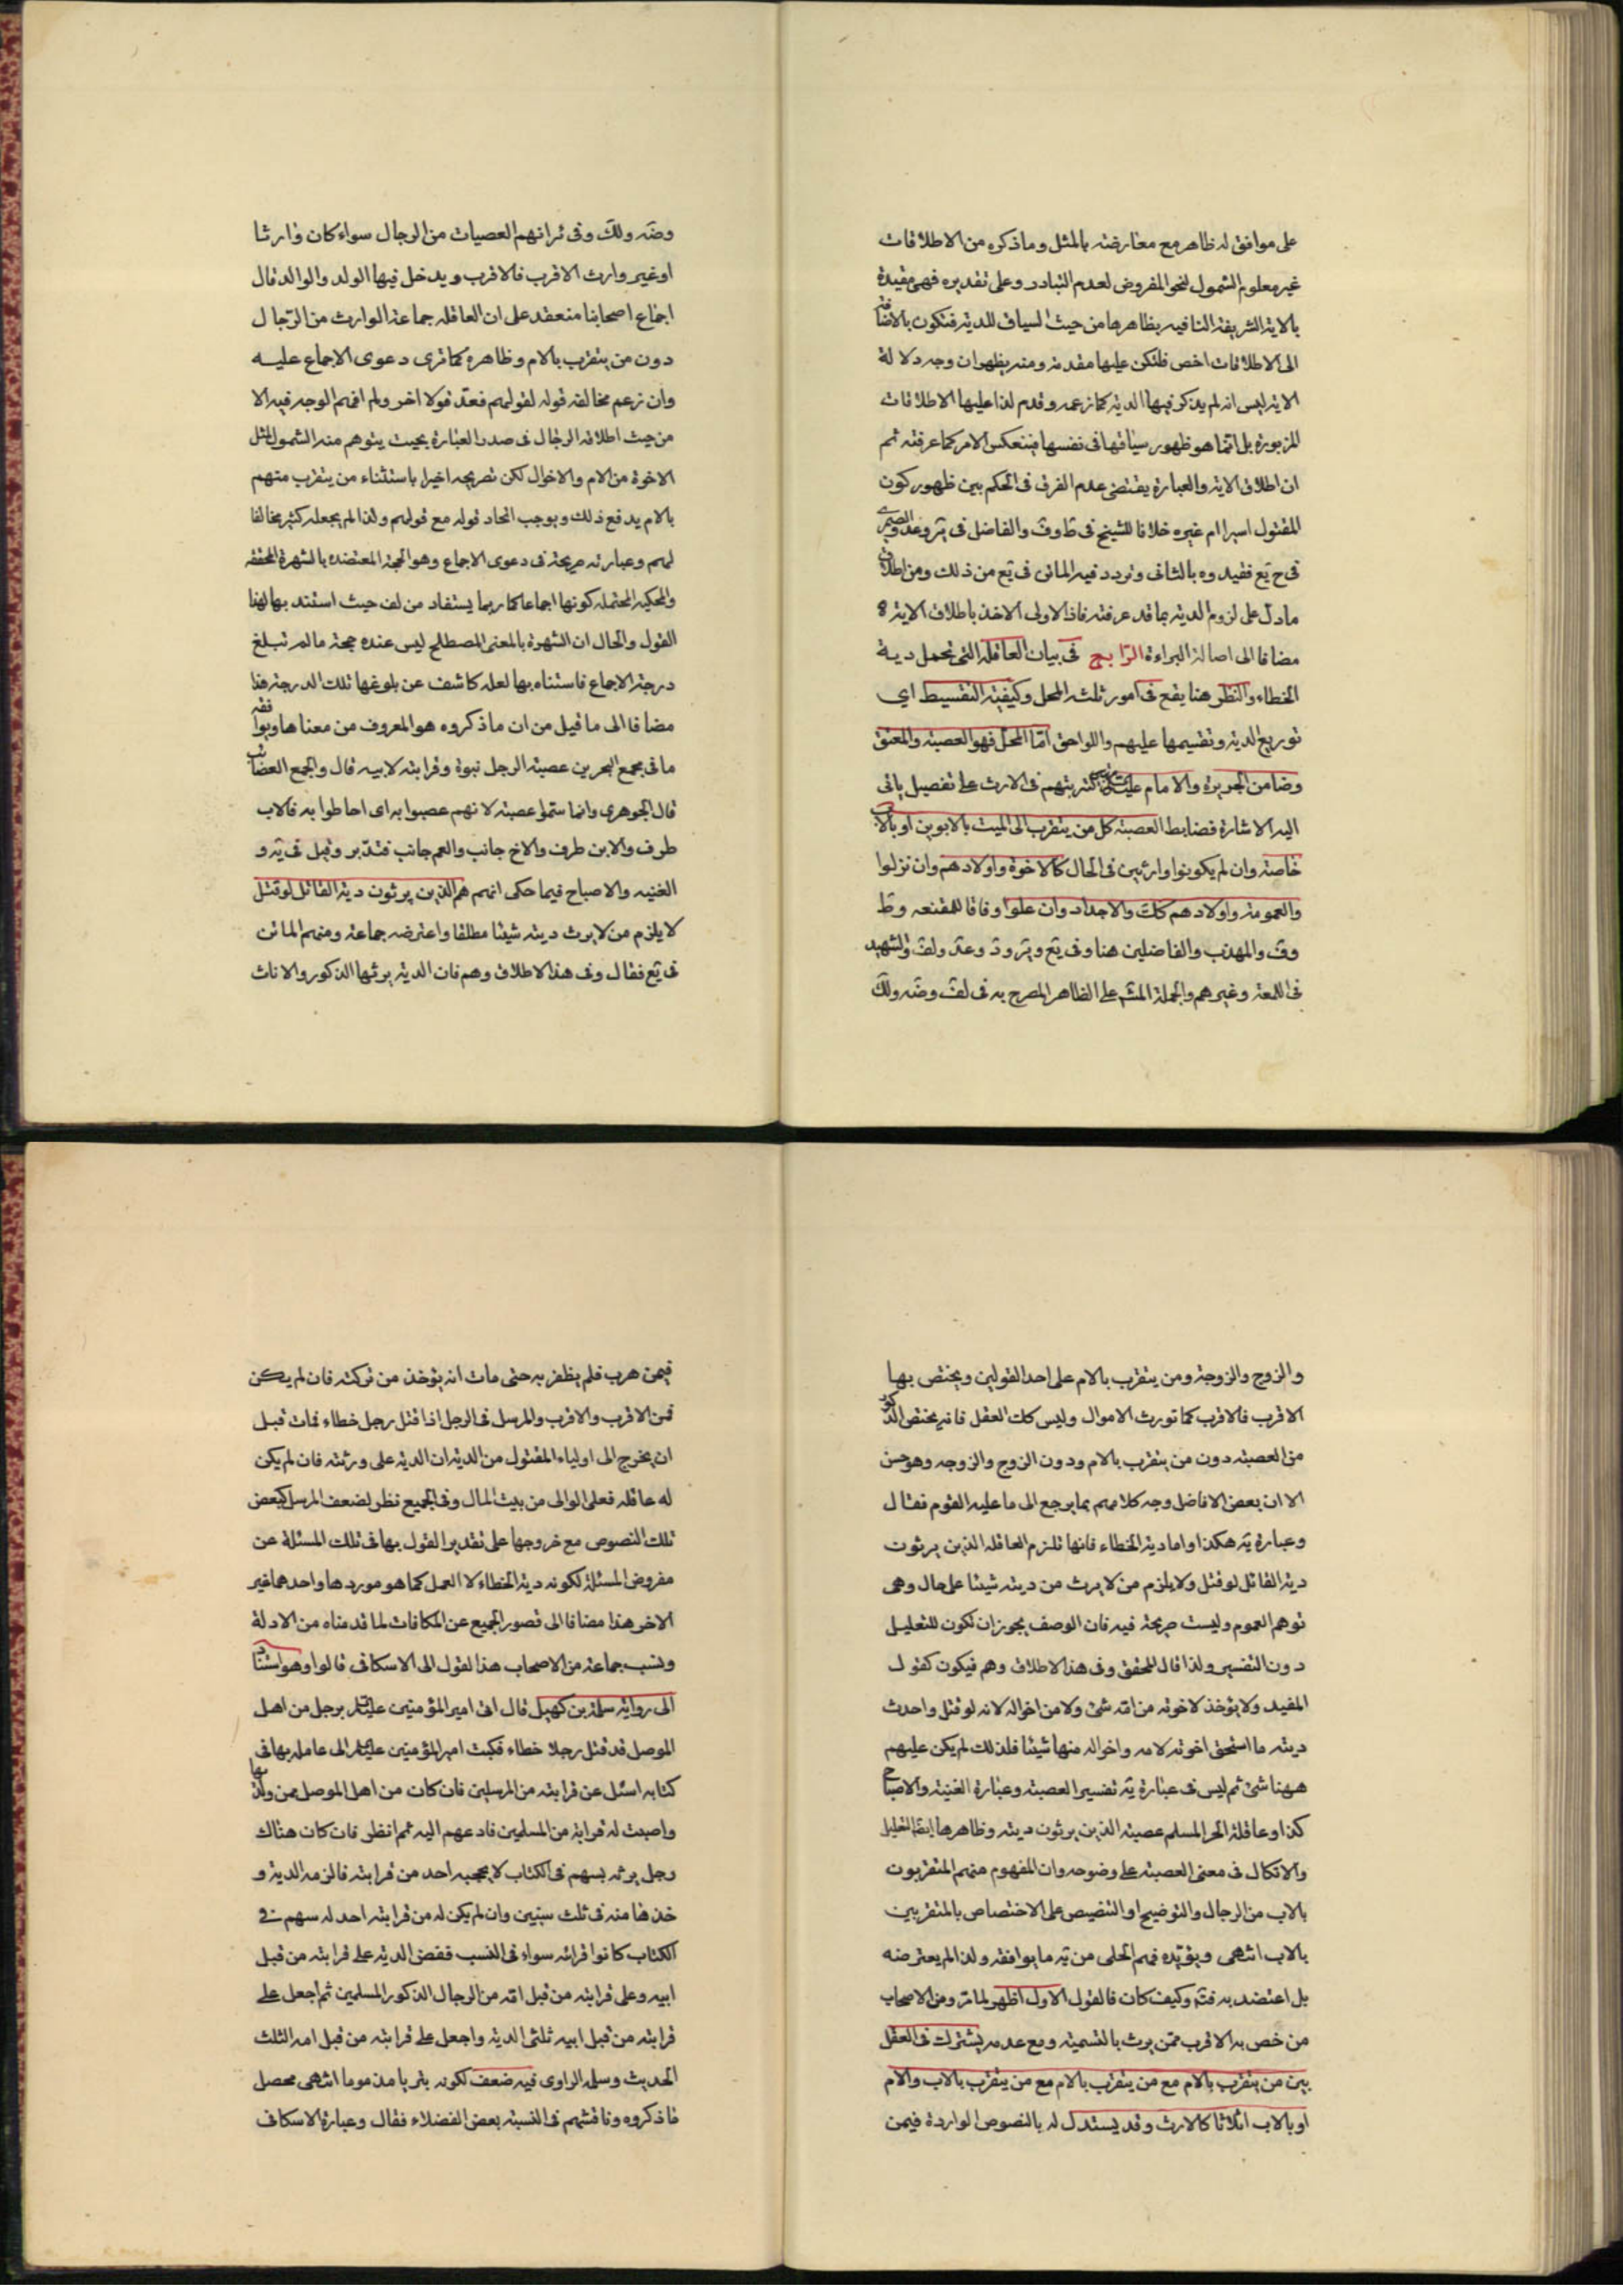 على موافق له ظاهر مع معارضته بالمثل وما ذكره من الاطلاقات
غير معلوم الشمول لنحو المفروض لعدم التبادر وعلى تقديره فهى مقيدة
بالاية الشريفة النافية بظاهرها من حيث السياق للدية فتكون بالاضافة
الى الاطلاقات اخص فلتكن عليها مقدمة ومنه يظهر ان وجه دلالة
الاية ليس انه لم يذكر فيها الدية كما زعمه وقدم لذا عليها الاطلاقات
المزبورة بل انما هو ظهور سياقها فى نفسها فينعكس الامر كما عرفته ثم
ان اطلاق الاية والعبارة يقتضى عدم الفرق فى الحكم بين ظهور كون
المقتول اسيرا ام غيره خلافا للشيخ فى ط وف والفاضل فى ير وعد والصيمرى
فى ح يع فقيدوه بالثانى وتردد فيه الماتن فى يع من ذلك ومن اطلاق
ما دل على لزوم الدية بما قد عرفته فاذا الاولى الاخذ باطلاق الاية
مضافا الى اصالة البراءة الرابع فى بيان العاقلة التى تحمل دية
الخطاء والنظر هنا يقع فى امور ثلثة المحل وكيفية التقسيط اى
توزيع الدية وتقسيمها عليهم واللواحق اما المحل فهو العصبة والمعتق
وضامن الجريرة والامام عليه السلام كترتيبهم فى الارث على تفصيل ياتى
اليه الاشارة فضابط العصبة كل من يتقرب الى الميت بالابوين او بالاب
خاصة وان لم يكونوا وارثين فى الحال كالاخوة واولادهم وان نزلوا
والعمومة واولادهم كلك والاجداد وان علوا وفاقا للمقنعه وط
وف والمهذب والفاضلين هنا وفى يع وير ود وعد ولف والشهيد
فى اللمعة وغيرهم وبالجملة المش على الظاهر المصرح به فى لف وضه ولك
وضه ولك وفى ثرانهم العصبات من الرجال سواء كان وارثا
او غير وارث الاقرب فالاقرب ويدخل فيها الولد والوالد قال
اجماع اصحابنا منعقد على ان العاقله جماعة الوارث من الرجال
دون من يتقرب بالام وظاهره كما ترى دعوى الاجماع عليه
وان زعم مخالفة قوله لقولهم فعد قولا اخر ولم افهم الوجه فيه الا
من حيث اطلاقه الرجال فى صدر العبارة بحيث يتوهم منه الشمول لمثل
الاخوة من الام والاخوال لكن تصريحه اخيرا باستثناء من يتقرب منهم
بالام يدفع ذلك ويوجب اتحاد قوله مع قولهم ولذا لم يجعله كثير مخالفا
لهم وعبارته صريحة فى دعوى الاجماع وهو الحجة المعتضده بالشهرة المحققه
والمحكيه المحتمله كونها اجماعا كما ربما يستفاد من لف حيث استند بها لهذا
القول والحال ان الشهرة بالمعنى المصطلح ليس عنده حجة ما لم تبلغ
درجة الاجماع فاستناه بها لعله كاشف عن بلوغها تلك الدرجة هذا
مضافا الى ما قيل من ان ما ذكروه هو المعروف من معناها ويوافقه
ما فى مجمع البحرين عصبة الرجل بنوه وقرابته لابيه قال والجمع العصاب
قال الجوهرى وانما سموا عصبة لانهم عصبوا به اى احاطوا به فالاب
طرف والابن طرف والاخ جانب والعم جانب فتدبر وقيل فى يه و
الغنيه والاصباح فيما حكى انهم هم الذين يرثون دية القاتل لو قتل
لا يلزم من لا يرث ديته شيئا مطلقا واعترضه جماعة ومنهم الماتن
فى يع فقال وفى هذا الاطلاق وهم فان الدية يرثها الذكور والاناث
والزوج والزوجة ومن يتقرب بالام على احد القولين ويختص بها
الاقرب فالاقرب كما تورث الاموال وليس كك العقل فانه يختص الذكور
من العصبة دون من يتقرب بالام ودون الزوج والزوجه وهو حسن
الا ان بعض الافاضل وجه كلامهم بما يرجع الى ما عليه القوم فقال
وعبارة يه هكذا واما دية الخطاء فانها تلزم العاقله الذين يرثون
دية القاتل لو قتل ولا يلزم من لا يرث من ديته شيئا على حال وهى
توهم العموم وليست صريحة فيه فان الوصف يجوز ان تكون للتعليل
دون التفسير ولذا قال المحقق وفى هذا الاطلاق وهم فيكون كقول
المفيد ولا يؤخذ لاخوته من امه شئ ولا من اخواله لانه لو قتل واخذت
ديته ما استحق اخوته لامه واخواله منها شيئا فلذلك لم يكن عليهم
ههنا شئ ثم ليس فى عبارة يه تفسير العصبة وعبارة الغنية والاصباح
كذا وعاقلة الحر المسلم عصبته الذين يرثون ديته وظاهرها ايضا التعليل
والاتكال فى معنى العصبة على وضوحه وان المفهوم منهم المتقربون
بالاب من الرجال والتوضيح او التنصيص على الاختصاص بالمتقربين
بالاب انتهى ويؤيده فهم الحلى من يه ما يوافقه ولذا لم يعترضه
بل اعتضد به فتم وكيف كان فالقول الاول اظهر لما مر ومن الاصحاب
من خص به الاقرب ممن يرث بالتسمية ومع عدمه يشترك فى العقل
بين من يتقرب بالام مع من يتقرب بالام مع من يتقرب بالاب والام
او بالاب اثلاثا كالارث وقد يستدل له بالنصوص الواردة فيمن
فيمن هرب فلم يظفر به حتى مات انه يؤخذ من تركته فان لم يكن
فمن الاقرب والاقرب والمرسل فى الرجل اذا قتل رجل خطاء فمات قبل
ان يخرج الى اولياء المقتول من الدية ان الدية على ورثته فان لم يكن
له عاقله فعلى الوالى من بيت المال وفى الجميع نظر لضعف المرسل كبعض
تلك النصوص مع خروجها على تقدير القول بها فى تلك المسئلة عن
مفروض المسئلة لكونه دية الخطاء لا العمد كما هو موردها واحدهما غير
الاخر هذا مضافا الى قصور الجميع عن المكافات لما قدمناه من الادلة
ونسب جماعة من الاصحاب هذا القول الى الاسكافى قالوا وهو استنادا
الى رواية سلمة بن كهيل قال اتى امير المؤمنين عليه السلام برجل من اهل
الموصل قد قتل رجلا خطاء فكتب امير المؤمنين عليه السلام الى عامله بها فى
كتابه اسئل عن قرابته من المرسلين فان كان من اهل الموصل ممن ولد بها
واصبت له قرابة من المسلمين فادعهم اليه ثم انظر فان كان هناك
رجل يرثه بسهم فى الكتاب لا يحجبه احد من قرابته فالزمه الدية و
خذها منه فى ثلث سنين وان لم يكن له من قرابته احد له سهم فى
الكتاب كانوا قرابته سواء فى النسب ففض الدية على قرابته من قبل
ابيه وعلى قرابته من قبل امه من الرجال الذكور المسلمين ثم اجعل على
قرابته من قبل ابيه ثلثى الدية واجعل على قرابته من قبل امه الثلث
الحديث وسلمه الراوى فيه ضعف لكونه بتريا مذموما انتهى محصل
ما ذكروه وناقشهم فى النسبة بعض الفضلاء فقال وعبارة الاسكافى